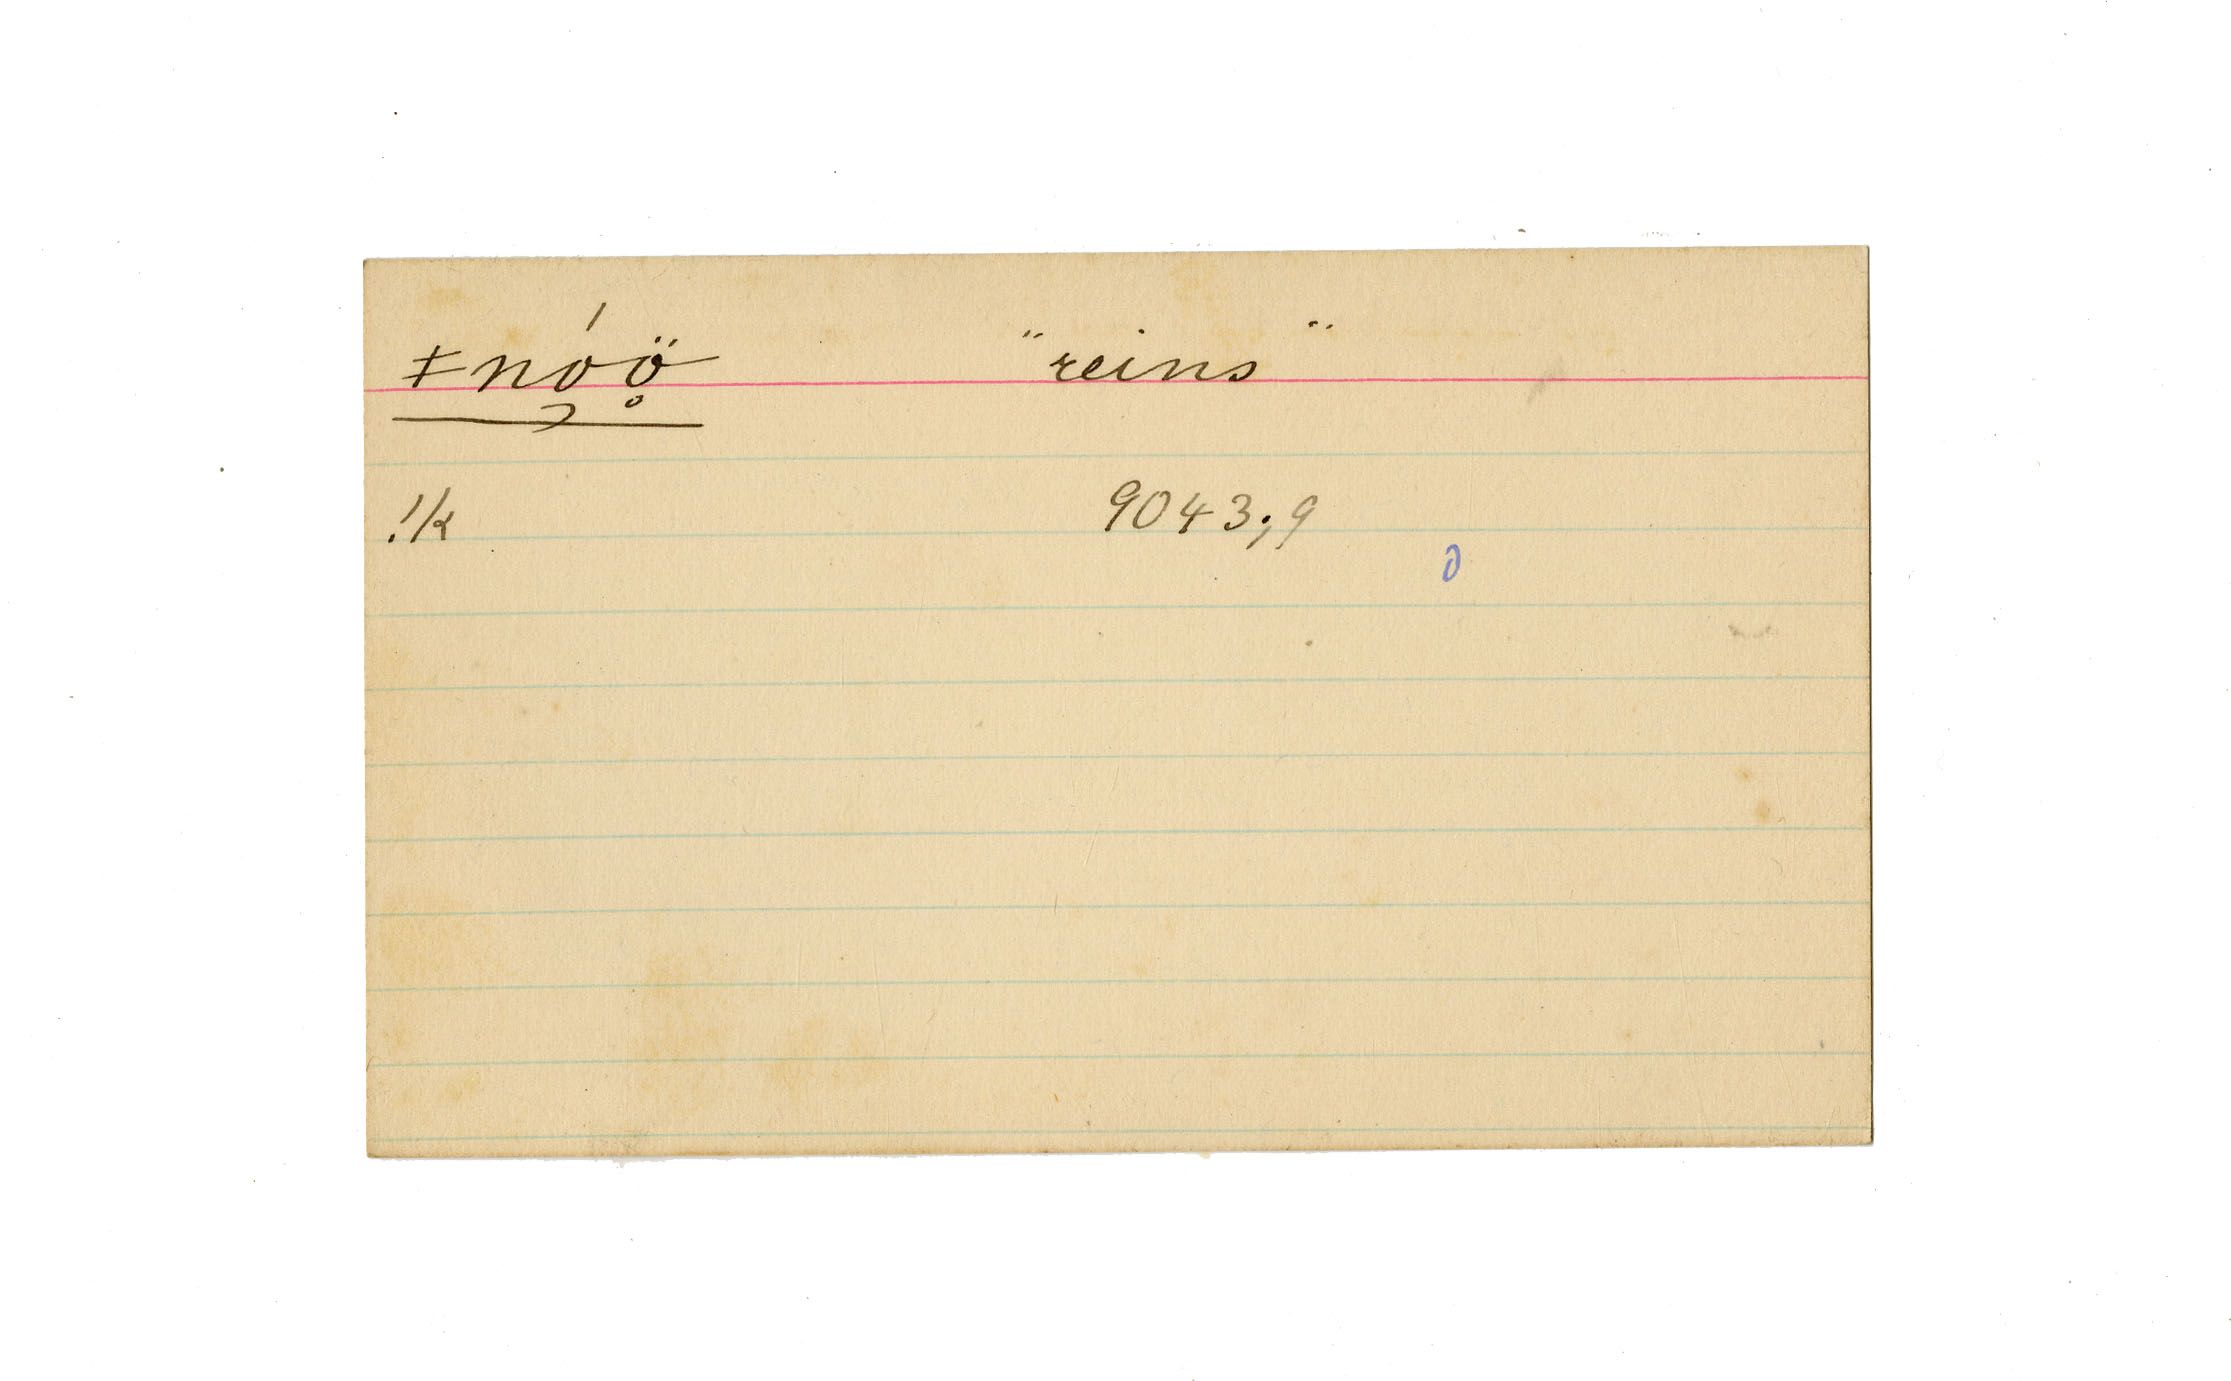 ǂnó̜ö̥ "reins"
!k 9043;9
∂